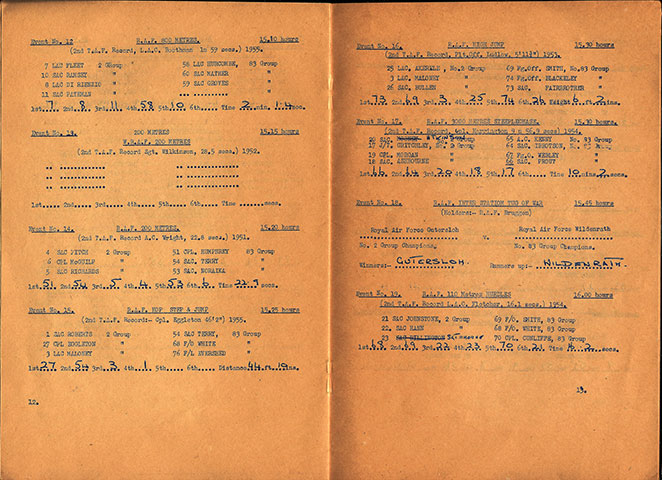 Event No. 12 R.A.F. 800 METRES. 15.10 hours
(2nd T.A.F. Record, L.A.C. Boothman 1m 59 secs.) 1955.
7 LAC FLEET 2 Group 58 LAC HURCOMBE, 83 Group
10 SAC RAMSEY " 60 SAC MATHER "
8 LAC DI RIENZIO " 59 SAC GROVES "
11 SAC PATEMAN " "
1st..7..2nd..8..3rd..11..4th..58..5th..10..6th.....Time 2 min. secs.
200 METRES 15.15 hours
W.R.A.F. 200 METRES
(2nd T.A.F. Record Sgt. Wilkinson, 28.5 secs.) 1952.
1st.....2nd.....3rd.....4th.....5th.....6th.....Time ......secs.
Event No. 14. R.A.F. 200 METRES. 15.20 hours
(2nd T.A.F. Record A.C. Wright, 21.8 secs.) 1951.
4 SAC FITCH 2 Group 51 CPL. HUMPHREY 83 Group
6 CPL McGUILF " 54 SAC. TERRY "
5 SAC RICHARDS " 53 SAC. "
1st.51..2nd.54..3rd..5..4th..4..5th.53..6th..6..Time 22.9 secs.
Event No. 15. R.A.F. HOP STEP & JUMP 15.25 hours
(2nd T.A.F. Record:- Cpl. Eggleton 46'2") 1955.
1 SAC ROBERTS 2 Group 54 SAC TERRY, 83 Group
27 CPL EGGLETON " 68 F/O WHITE "
3 LAC MALONEY " 76 P/L EVERSHED "
1st.27..2nd.54..3rd..3..4th..1..5th.....6th.....Distance.44.ft.10.ins.
12.
Event No. 16. R.A.F. HIGH JUMP 15.30 hours
(2nd T.A.F. Record, Flt.Off. Ludlow, 5'11½") 1953.
25 LAC, AKERELE, No.2 Group 69 Fg.Off. SMITH, No.83 Group
3 LAC, MALONEY " 74 FG.Off. BLACKLEY "
26 SAC, HULLEN " 73 SAC, FAIRBROTHER "
1st.73..2nd.69..3rd..3..4th.25..5th.74..6th.26..Height 5 ft. 2 ins.
Event No. 17. R.A.F. 3000 METRES STEEPLECHASE. 15.30 hours
20 SAC. ATKINSON 65 A.C. KENNY No. 83 Group
17 J/T. CRITCHLEY, No. 2 Group 64 SAC. "
19 CPL MORGAN " 67 Fg.O. WESLEY "
18 SAC. ASHBOURNE " 66 SAC. PROUT "
1st.66..2nd.64..3rd.20..4th.18..5th.17..6th.....Time 10 mins. 2 secs.
Event No. 18. R.A.F. INTER STATION TUG OF WAR 15.45 hours
(Holders:- R.A.F. Bruggen)
Royal Air Force Gutersloh Royal Air Force Wildenrath
v.
No. 2 Group Champions. No. 83 Group Champions.
Winners:- GUTERSLOH. Runners up:- WILDENRATH.
Event No. 19. R.A.F. 110 Metres HURDLES 16.00 hours
(2nd T.A.F. Record LAC G. Fletcher, 16.1 secs.) 1954.
21 SAC JOHNSTONE, 2 Group 69 F/O. SMITH, 83 Group
22. SAC HANN " 68 F/O. WHITE, 83 Group
23 SAC 70 CPL. CUNLIFFE, 83 Group
1st.68..2nd.69..3rd.22..4th.23..5th.70..6th.21..Time 16.2 secs.
13.